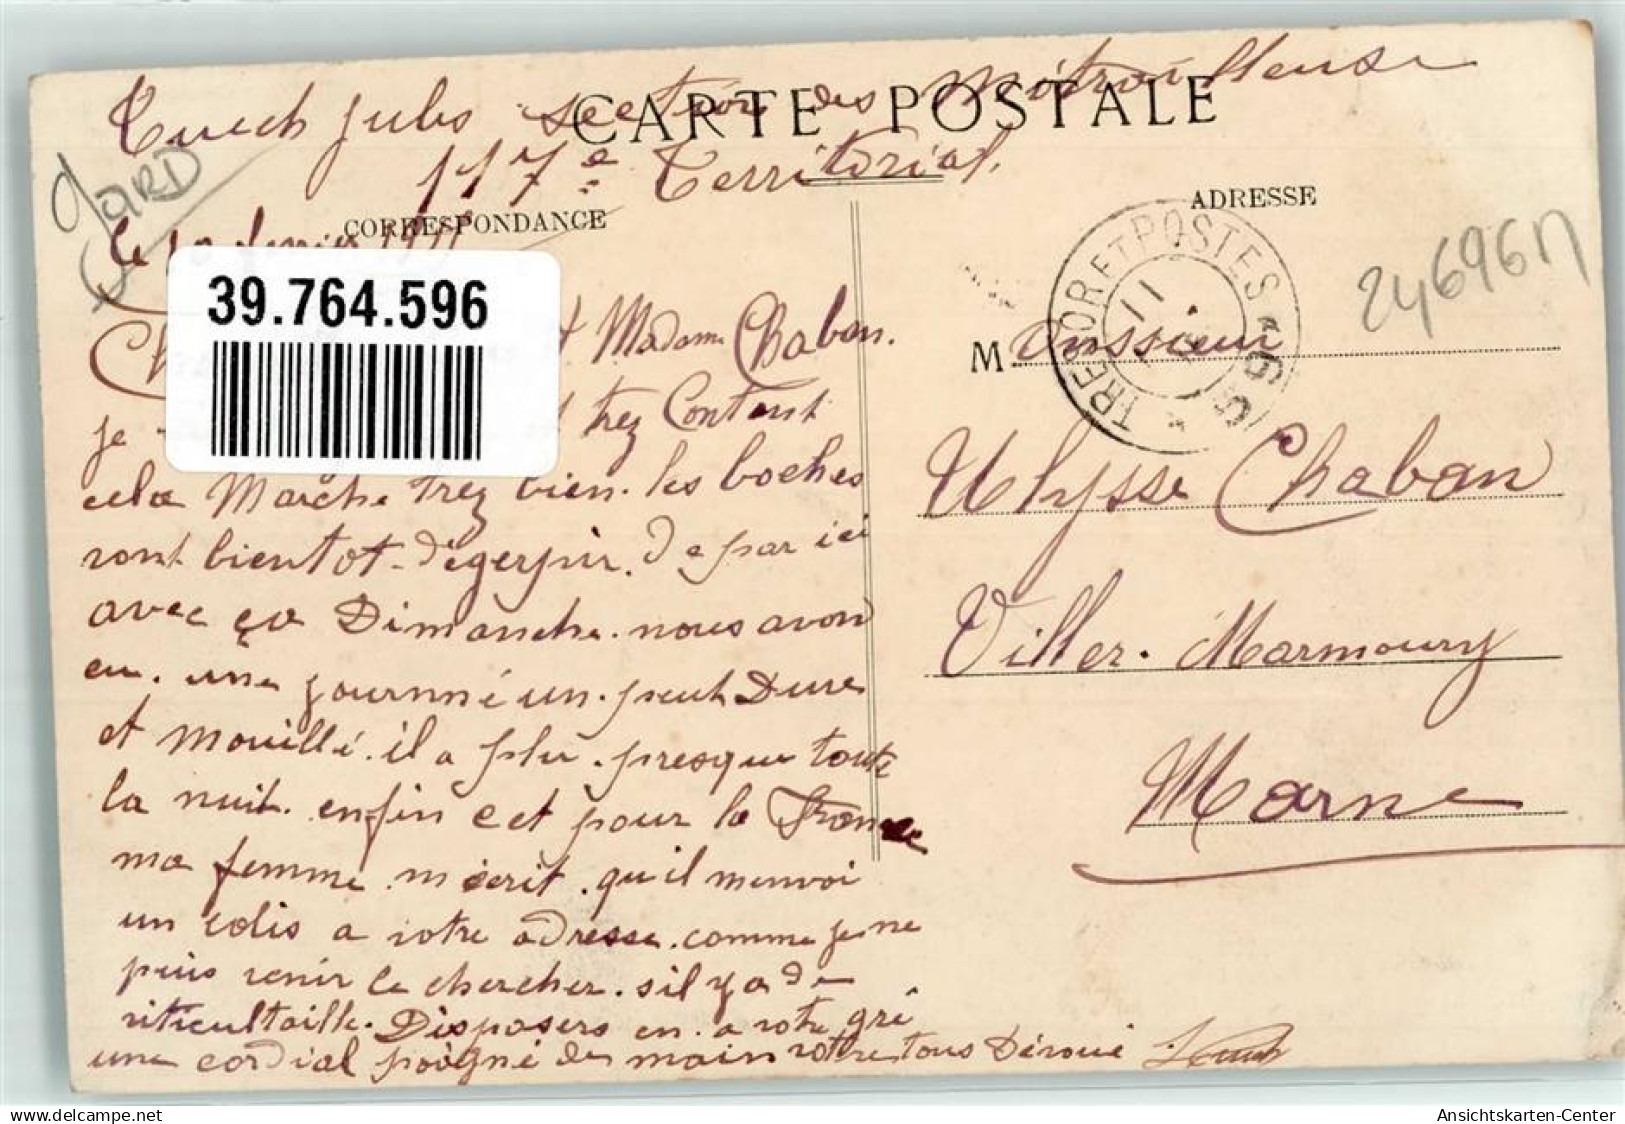 Cuech Jules section des Mitrailleuse
CARTE POSTALE
117e Territorial.
GARD
CORRESPONDANCE
ADRESSE
le 10 fevrier 191
39.764.596
Madame Chaban.
je trez Contant
cela Marche trez bien. les boches
vont bientot dégerpir. de par ici
avec ça Dimanche. nous avon
eu. une journné un. peut Dure
et Mouillé. il a plu. presque toute
la nuit. enfin c et pour la France
ma femme. m écrit. qu il menvoi
un colis a votre adresse. comme je ne
puis venir le chercher. s il y a de
viticultaille. Disposers en. a votre grê
une cordial poigné de main votre tous Dévoué Cuech
TRESOR ET POSTES
11
56
246961
Monsieur
Ulysse Chaban
Viller. Marmoury
Marne
delcampe.net
Ansichtskarten-Center